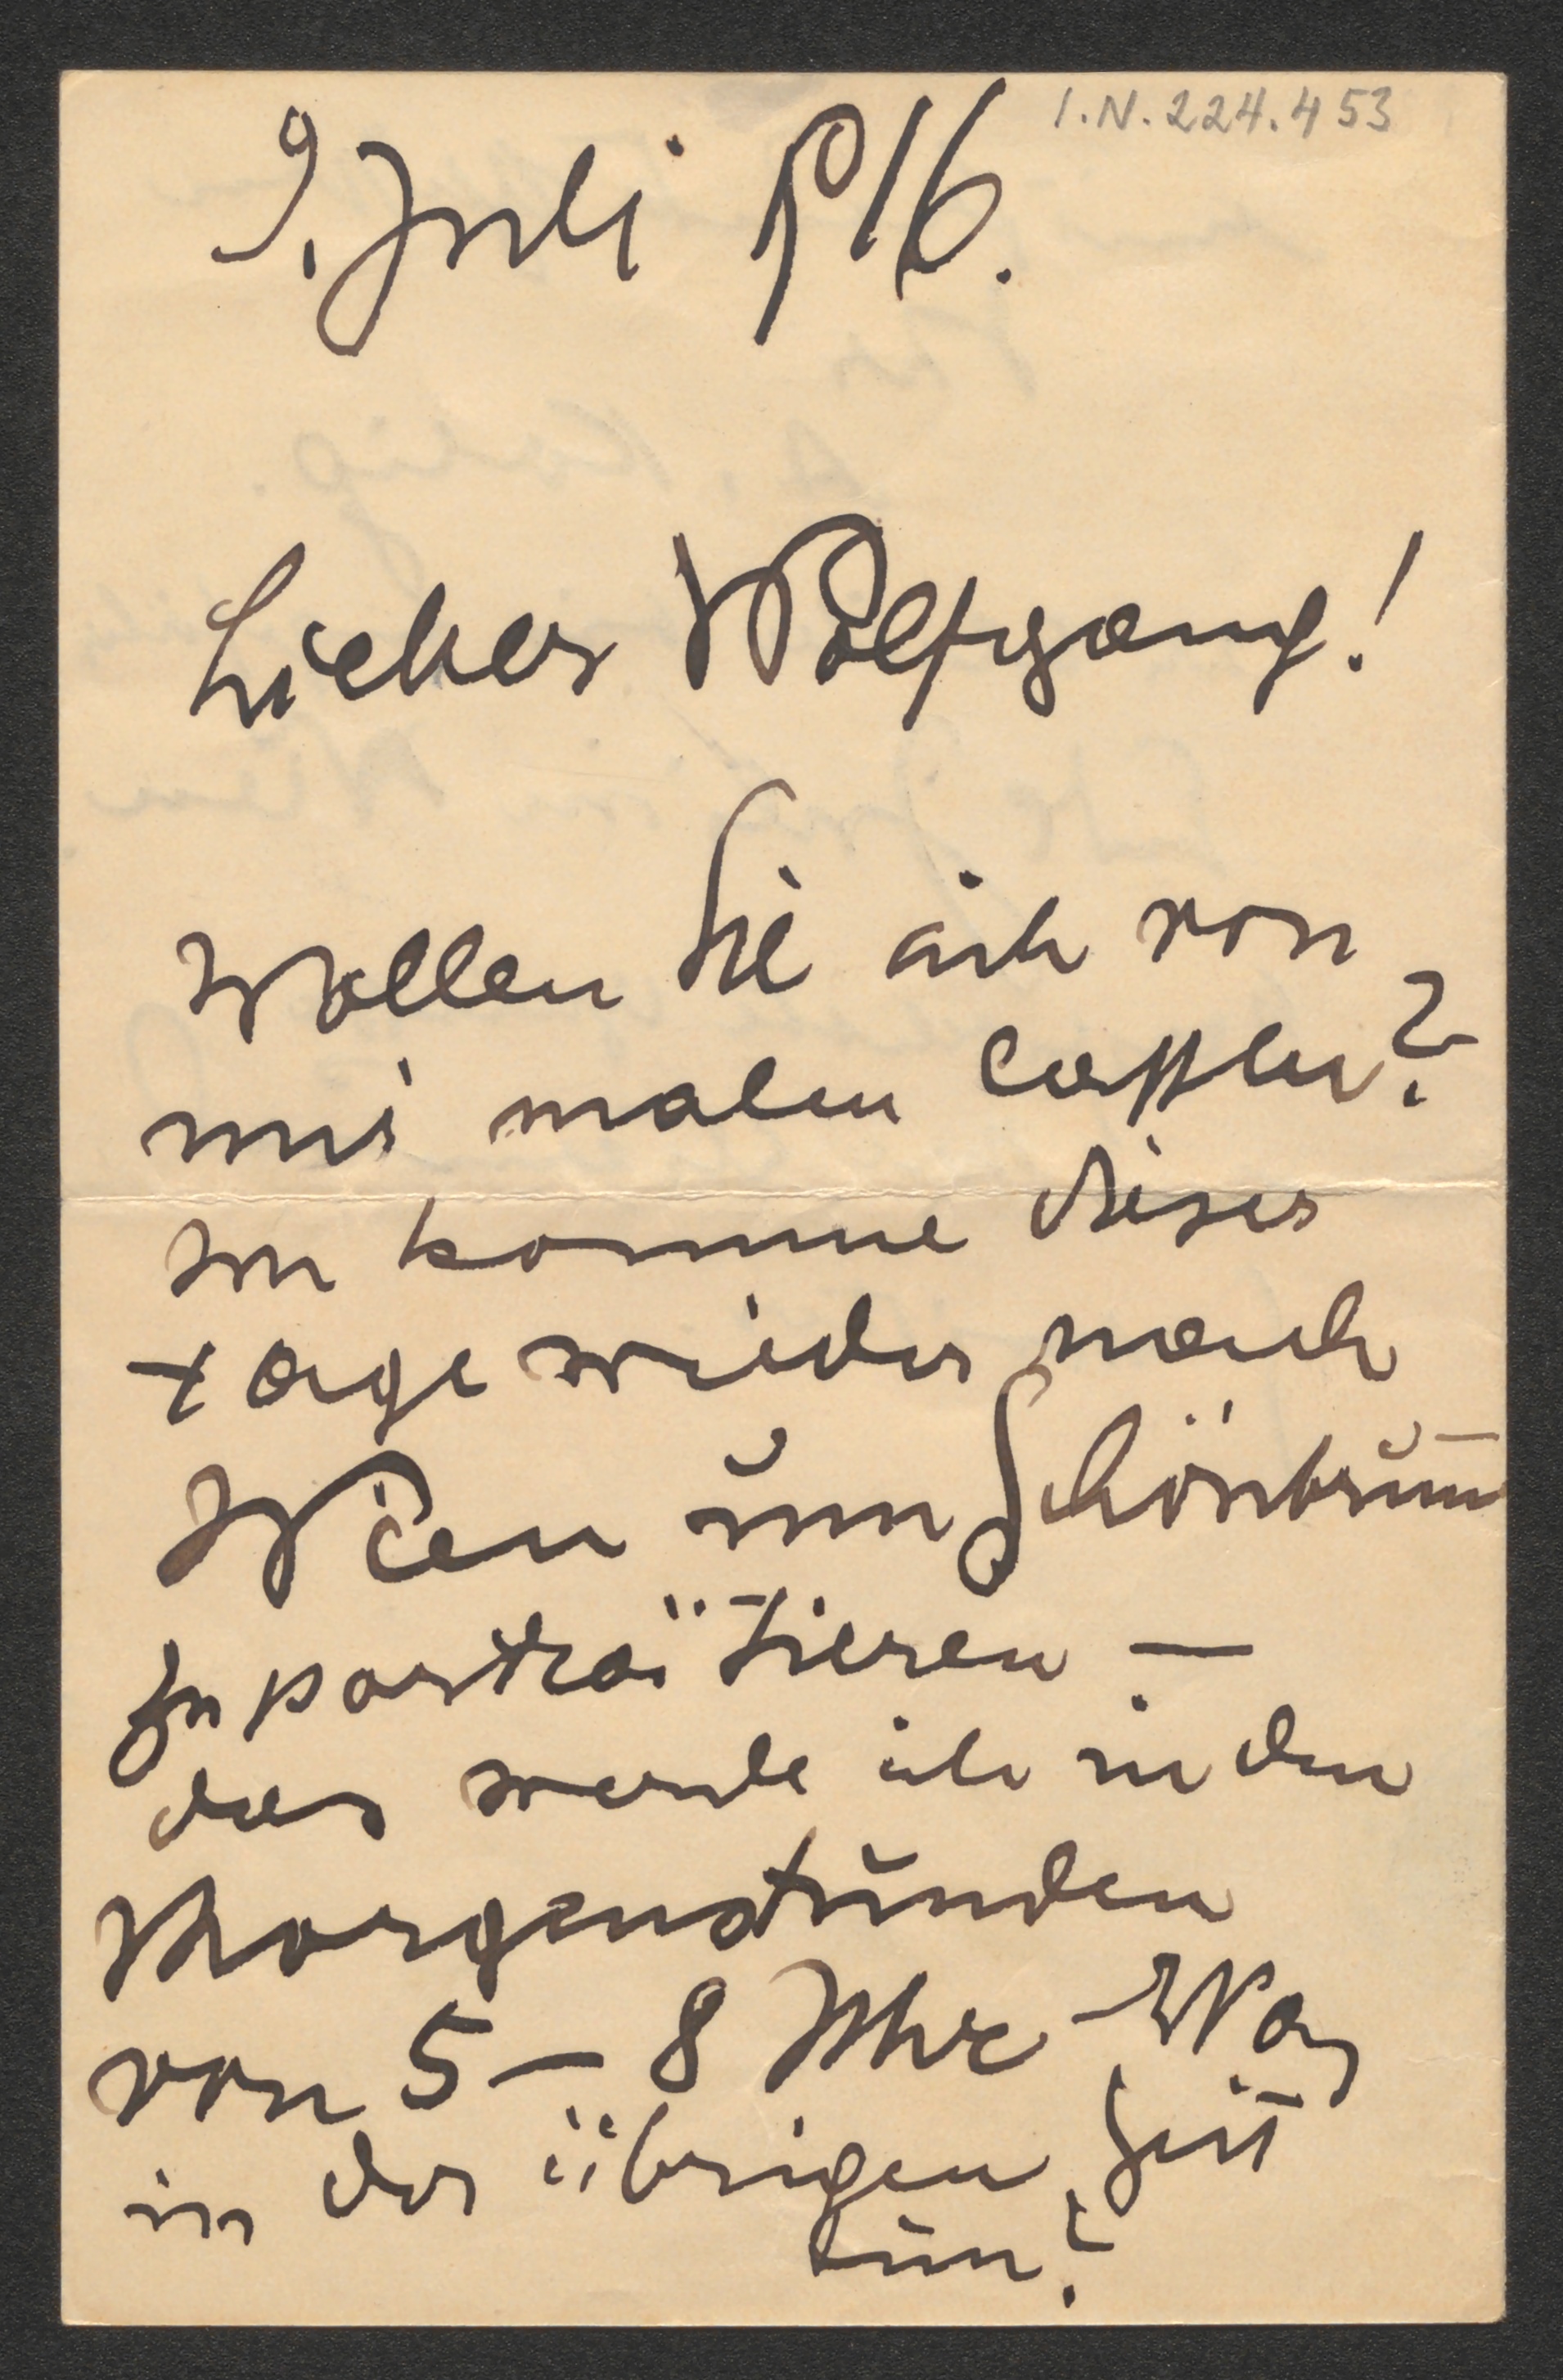 I.N. 224.453
9. Juli 916.
Lieber Wolfgang!
Wollen Sie sich von
mir malen lassen?
Ich komme dieser
tage wieder nach
Wien um Schönbrunn
zu porträtieren —
das werde ich in den
Morgenstunden
von 5 – 8 Uhr – Was
in der übrigen Zeit
tun?